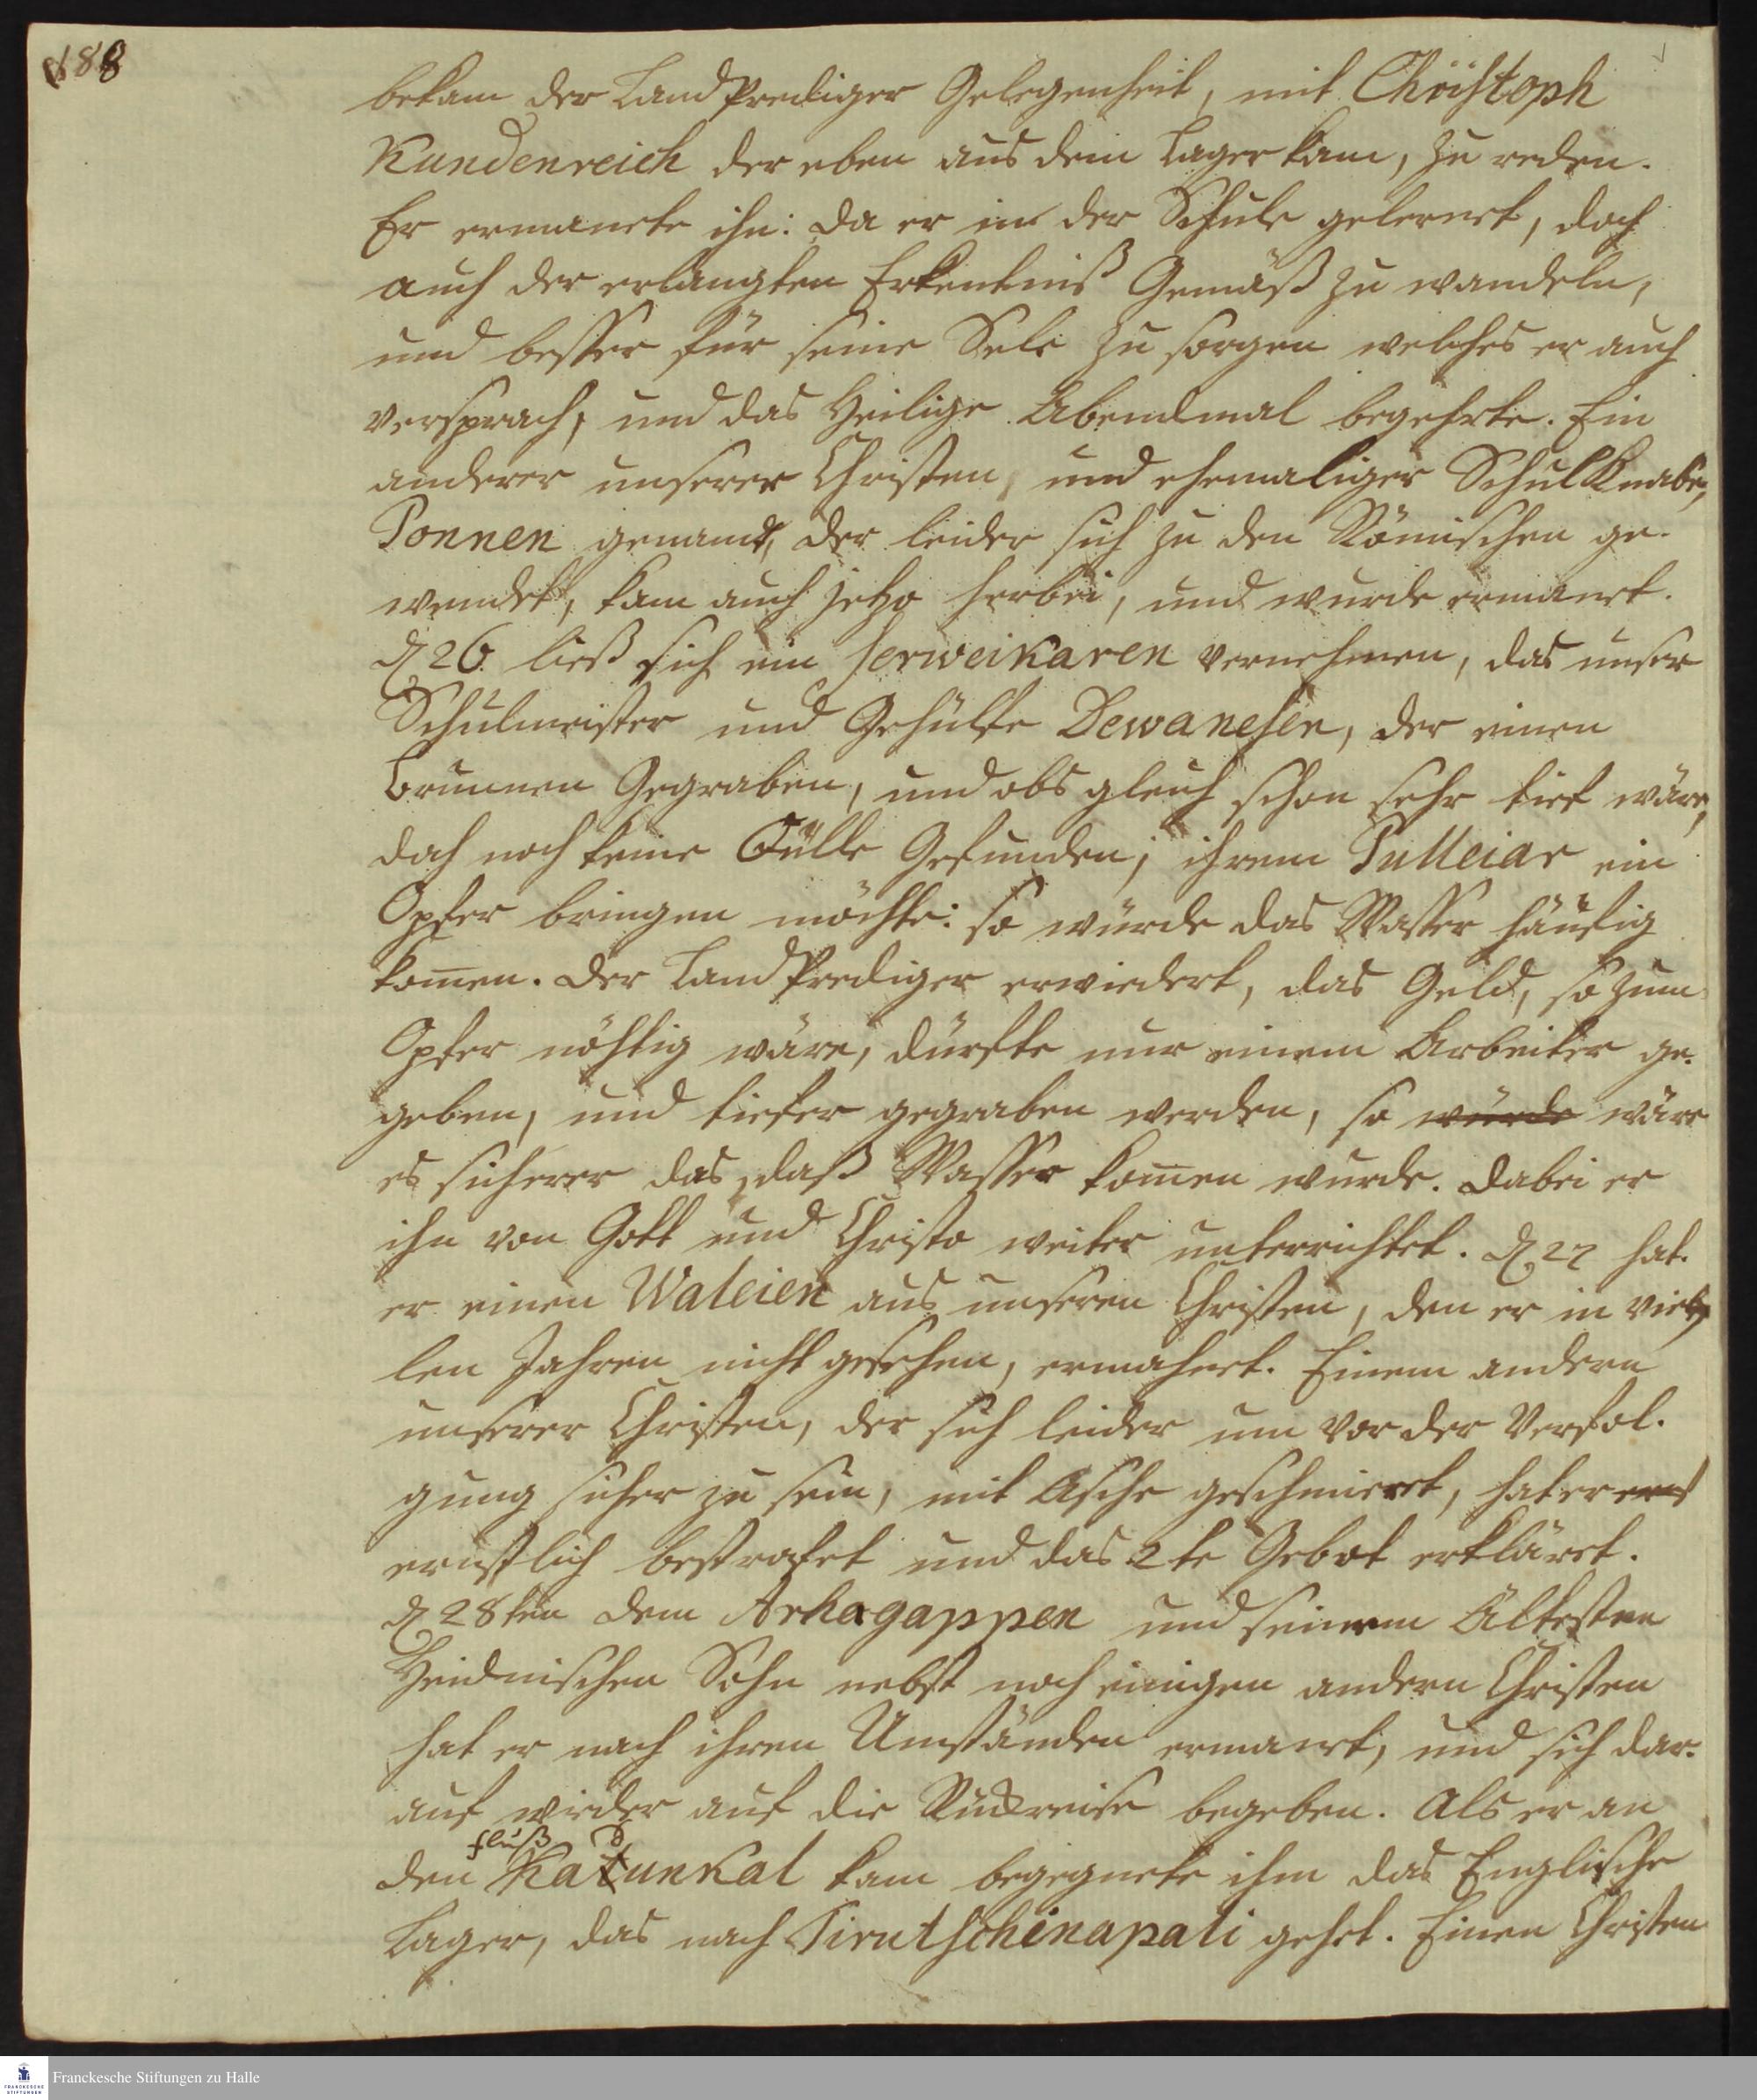 188
bekam der Land Prediger Gelegenheit, mit Christoph
Kundenreich der eben aus dem Lager kam, zu reden.
Er ermanete ihn: da er in der Schule gelernet, doch
auch der erlangten Erkentniß Gemäß zu wandeln,
und besser für seine Sele zu sorgen welches er auch
versprach, und das Heilige Abendmal begehrte. Ein
anderer unserer Christen, und ehemaliger Schul Knabe,
Ponnen genamt, der leider sich zu den Römischen ge-
wendet, kam auch jetzo herbei, und wurde ermanet.
d 26. ließ sich ein Serweikaren vernehmen, das unser
Schulmeister und Gehülfe Dewanesen, der einen
Brunnen Gegraben, und obs gleich schon sehr tief wäre,
doch noch keine Fülle Gefunden; ihrem Pulleiar ein
Opfer bringen möchte: so würde das Wasser häufig
kom̅en. Der Land Prediger erwiedert, das Geld, so zum
Opfer nöhtig wäre, dürfte nur einem Arbeiter ge-
geben, und tiefer gegraben werden, so würde wäre
es sicherer das, daß Wasser kom̅en wurde. Dabei er
ihn von Gott und Christo weiter unterrichtet. d 27 hat
er einen Waleien aus unseren Christen, den er in vie-
len Jahren nicht gesehen, ermahnet. Einem andern
unserer Christen, der sich leider um vor der Verfol-
gung sicher zu sein, mit Asche geschmieret, hat er
ernstlich bestrafet und das 2te Gebot erkläret.
d 28ten dem Arhagappen und seinem Ältesten
Heidnischen Sohn nebst noch einigen andern Christen
hat er nach ihren Umständen ermanet, und sich dar-
auf wieder auf die Rückreise begeben. Als er an
fluß d
den Katunkal kam begegnete ihm das Englische
Lager, das nach Tirutschinapali gehet. Einen Christen
Franckesche Stiftungen zu Halle